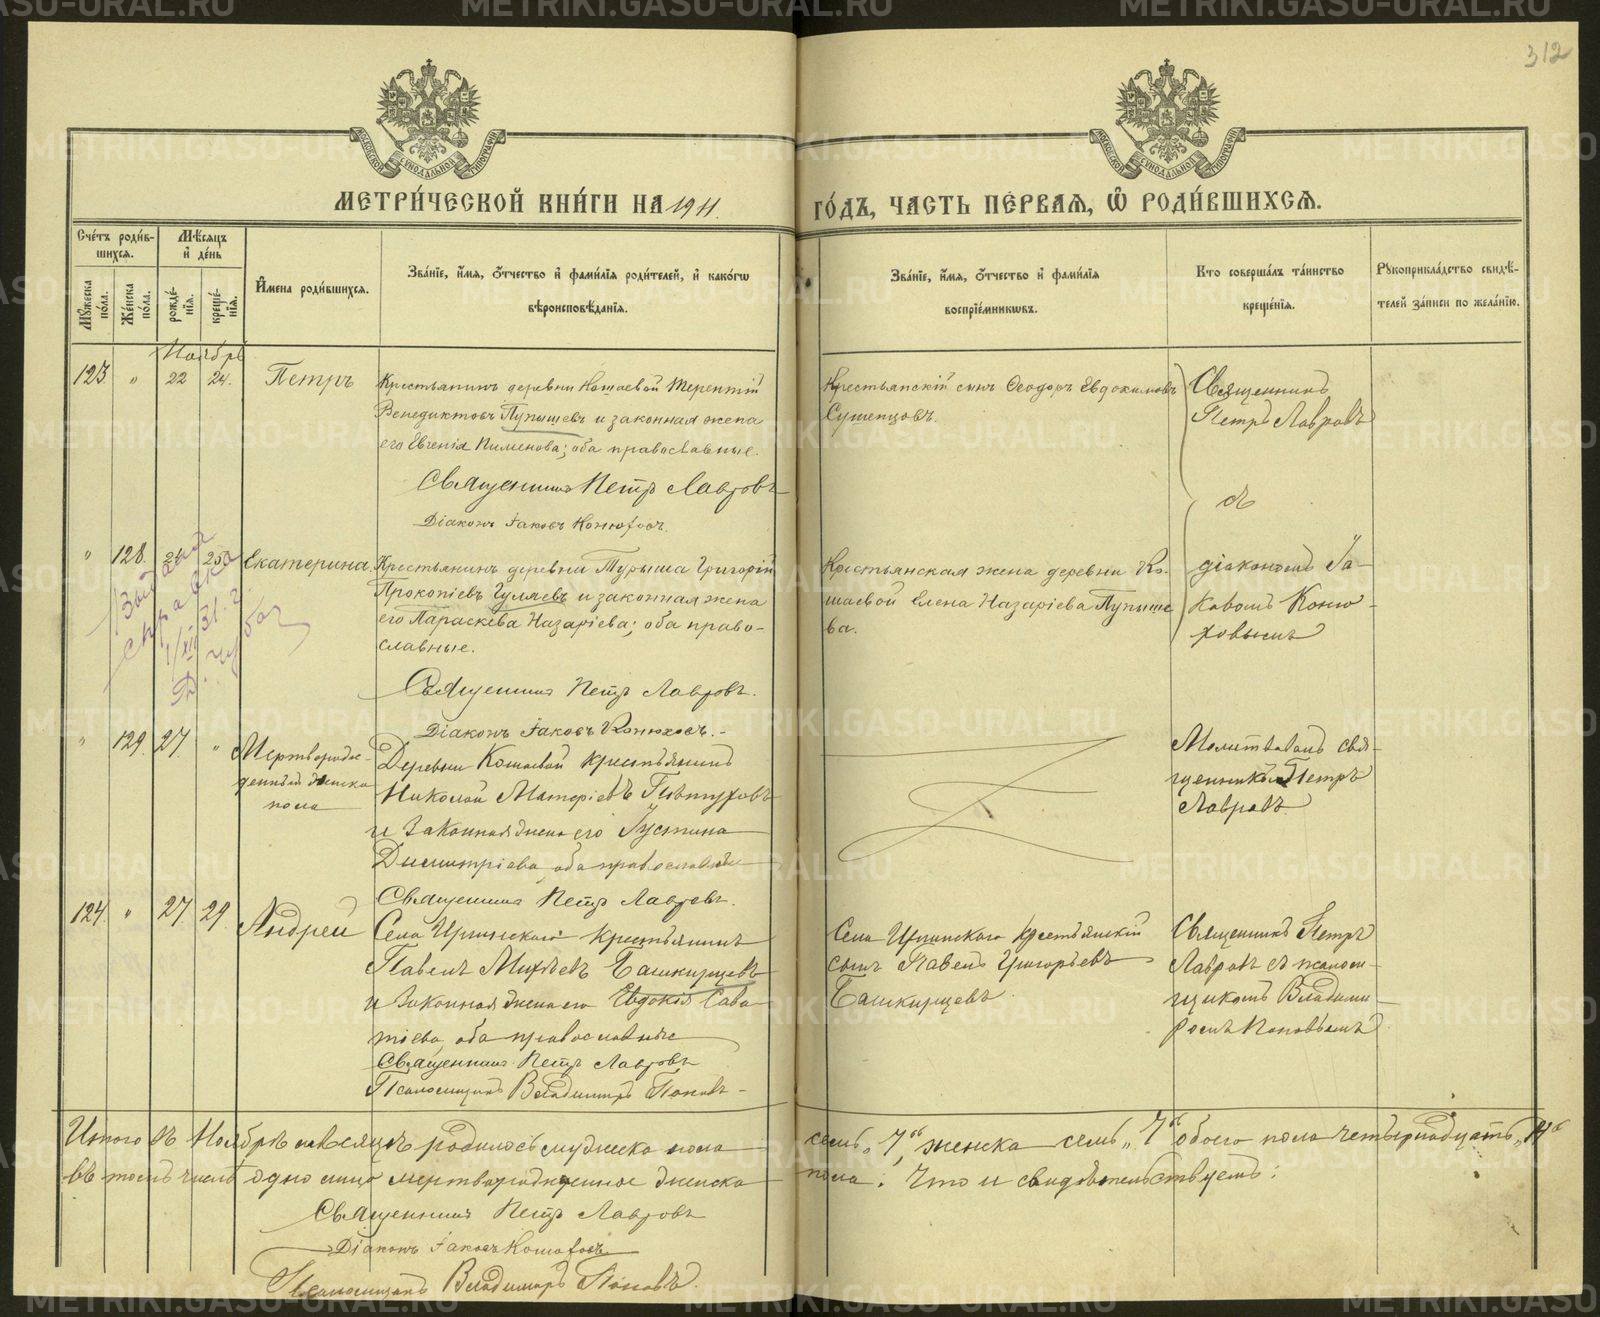 312
МЕТРИ́ЧЕСКОЙ КНИ́ГИ НА 1911.
ГО́ДЪ, ЧАСТЬ ПЕ́РВАЯ, Ѡ҆ РОДИ́ВШИХСЯ.
Сче́тъ роди́в-
шихся.
Мꙋ́жеска по́ла.
Же́нска по́ла.
Мѣ́сяцъ
и҆ де́нь
рожде́-
нїя.
креще́-
нїя.
И҆мена роди́вшихся.
Зва́нїе, и҆́мя, ѻ҆́тчество и҆ фами́лїя роди́телей, и҆ како́гѡ
вѣроисповѣ́данїя.
Зва́нїе, и҆́мя, ѻ҆́тчество и҆ фами́лїя
воспрїе́мникѡвъ.
Кто соверша́лъ та́инство
креще́нїя.
Рꙋкоприкла́дство свидѣ́-
телей за́писи по жела́нїю.
Ноябрь
123 " 22 24. Петръ
Крестьянинъ деревни Кошаевой Терентій
Венедиктовъ Пупышевъ и законная жена
его Евгенія Пименова; оба православные.
Священникъ Петръ Лавровъ
Діаконъ Іаковъ Конюховъ.
Крестьянскій сынъ Ѳеодоръ Евдокимовъ
Сушенцовъ.
Священникъ
Петръ Лавровъ
съ
" 128. 24 25 Екатерина.
Крестьянинъ деревни Турыша Григорій
Прокопіевъ Гуляевъ и законная жена
его Параскева Назаріева; оба право-
славные.
Священникъ Петръ Лавровъ.
Діаконъ Іаковъ Конюховъ.
Крестьянская жена деревни Ко-
шаевой Елена Назаріева Пупыше
ва.
діакономъ Іа-
ковомъ Коню-
ховымъ
Выдана
справка
1/XII 31 г.
" 129. 27 "
Мертворож-
денный женска
пола
Деревни Кошаевой крестьянинъ
Николай Пѣтуховъ
и законная жена его Іустина
Димитріева, оба православные
Священникъ Петръ Лавровъ.
Молитвовалъ свя-
щенникъ Петръ
Лавровъ
124. " 27. 29. Андрей
Села Иргинскаго крестьянинъ
Павелъ Башкирцевъ
и законная жена его Евдокія Сава-
тіева, оба православные
Священникъ Петръ Лавровъ
Псаломщикъ Владимиръ Поповъ
Села Иргинскаго крестьянскій
сынъ Павелъ Григорьевъ
Башкирцевъ
Священникъ Петръ
Лавровъ съ псалом-
щикомъ Владими-
ромъ Поповымъ
Итого въ Ноябрѣ мѣсяцѣ родилось мужеска пола
семь "7", женска семь "7" обоего пола четырнадцать "14"
въ томъ числѣ одно лицо мертворожденное женска
пола. Что и свидѣтельствуемъ:
Священникъ Петръ Лавровъ
Діаконъ Іаковъ Конюховъ
Псаломщикъ Владимиръ Поповъ.
METRIKI.GASO-URAL.RU